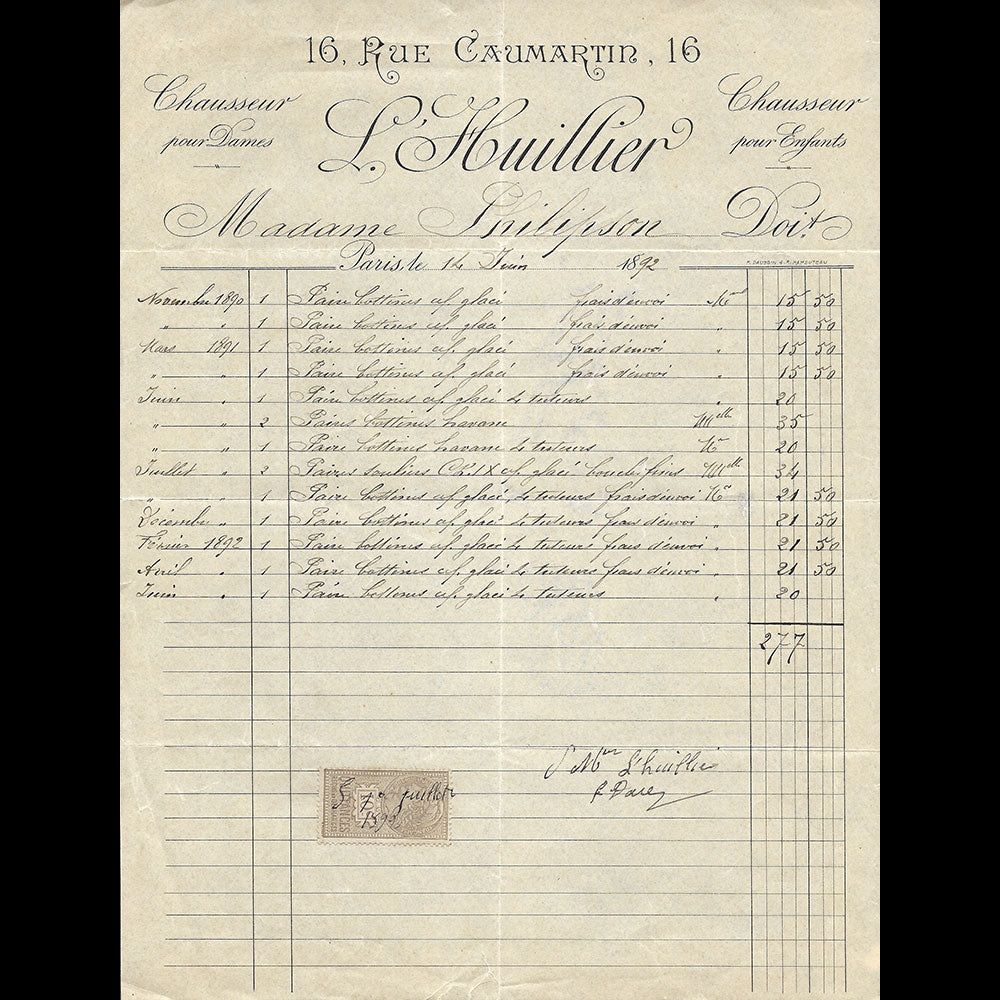 16, RUE CAUMARTIN, 16
Chausseur pour Dames
L. L'Huillier
Chausseur pour Enfants
Madame Philipson Doit
Paris, le 14 Juin 1892
Novembre 1890 1 Paire bottines glacé frais d'envoi 15 50
" " 1 Paire bottines glacé frais d'envoi " 15 50
Mars 1891 1 Paire bottines glacé frais d'envoi " 15 50
" " 1 Paire bottines glacé frais d'envoi " 15 50
Juin " 1 Paire bottines glacé & tuteurs " 20
" " 2 Paires bottines havane 35
" " 1 Paire bottines havane & tuteurs 20
Juillet " 2 Paires souliers Ch. IX glacé boucles 34
" 1 Paire bottines glacé & tuteurs frais d'envoi 21 50
Décembre " 1 Paire bottines glacé & tuteurs frais d'envoi " 21 50
Février 1892 1 Paire bottines glacé & tuteurs frais d'envoi " 21 50
Avril " 1 Paire bottines glacé & tuteurs frais d'envoi " 21 50
Juin " 1 Paire bottines glacé & tuteurs " 20
277
L'huillier
juillet